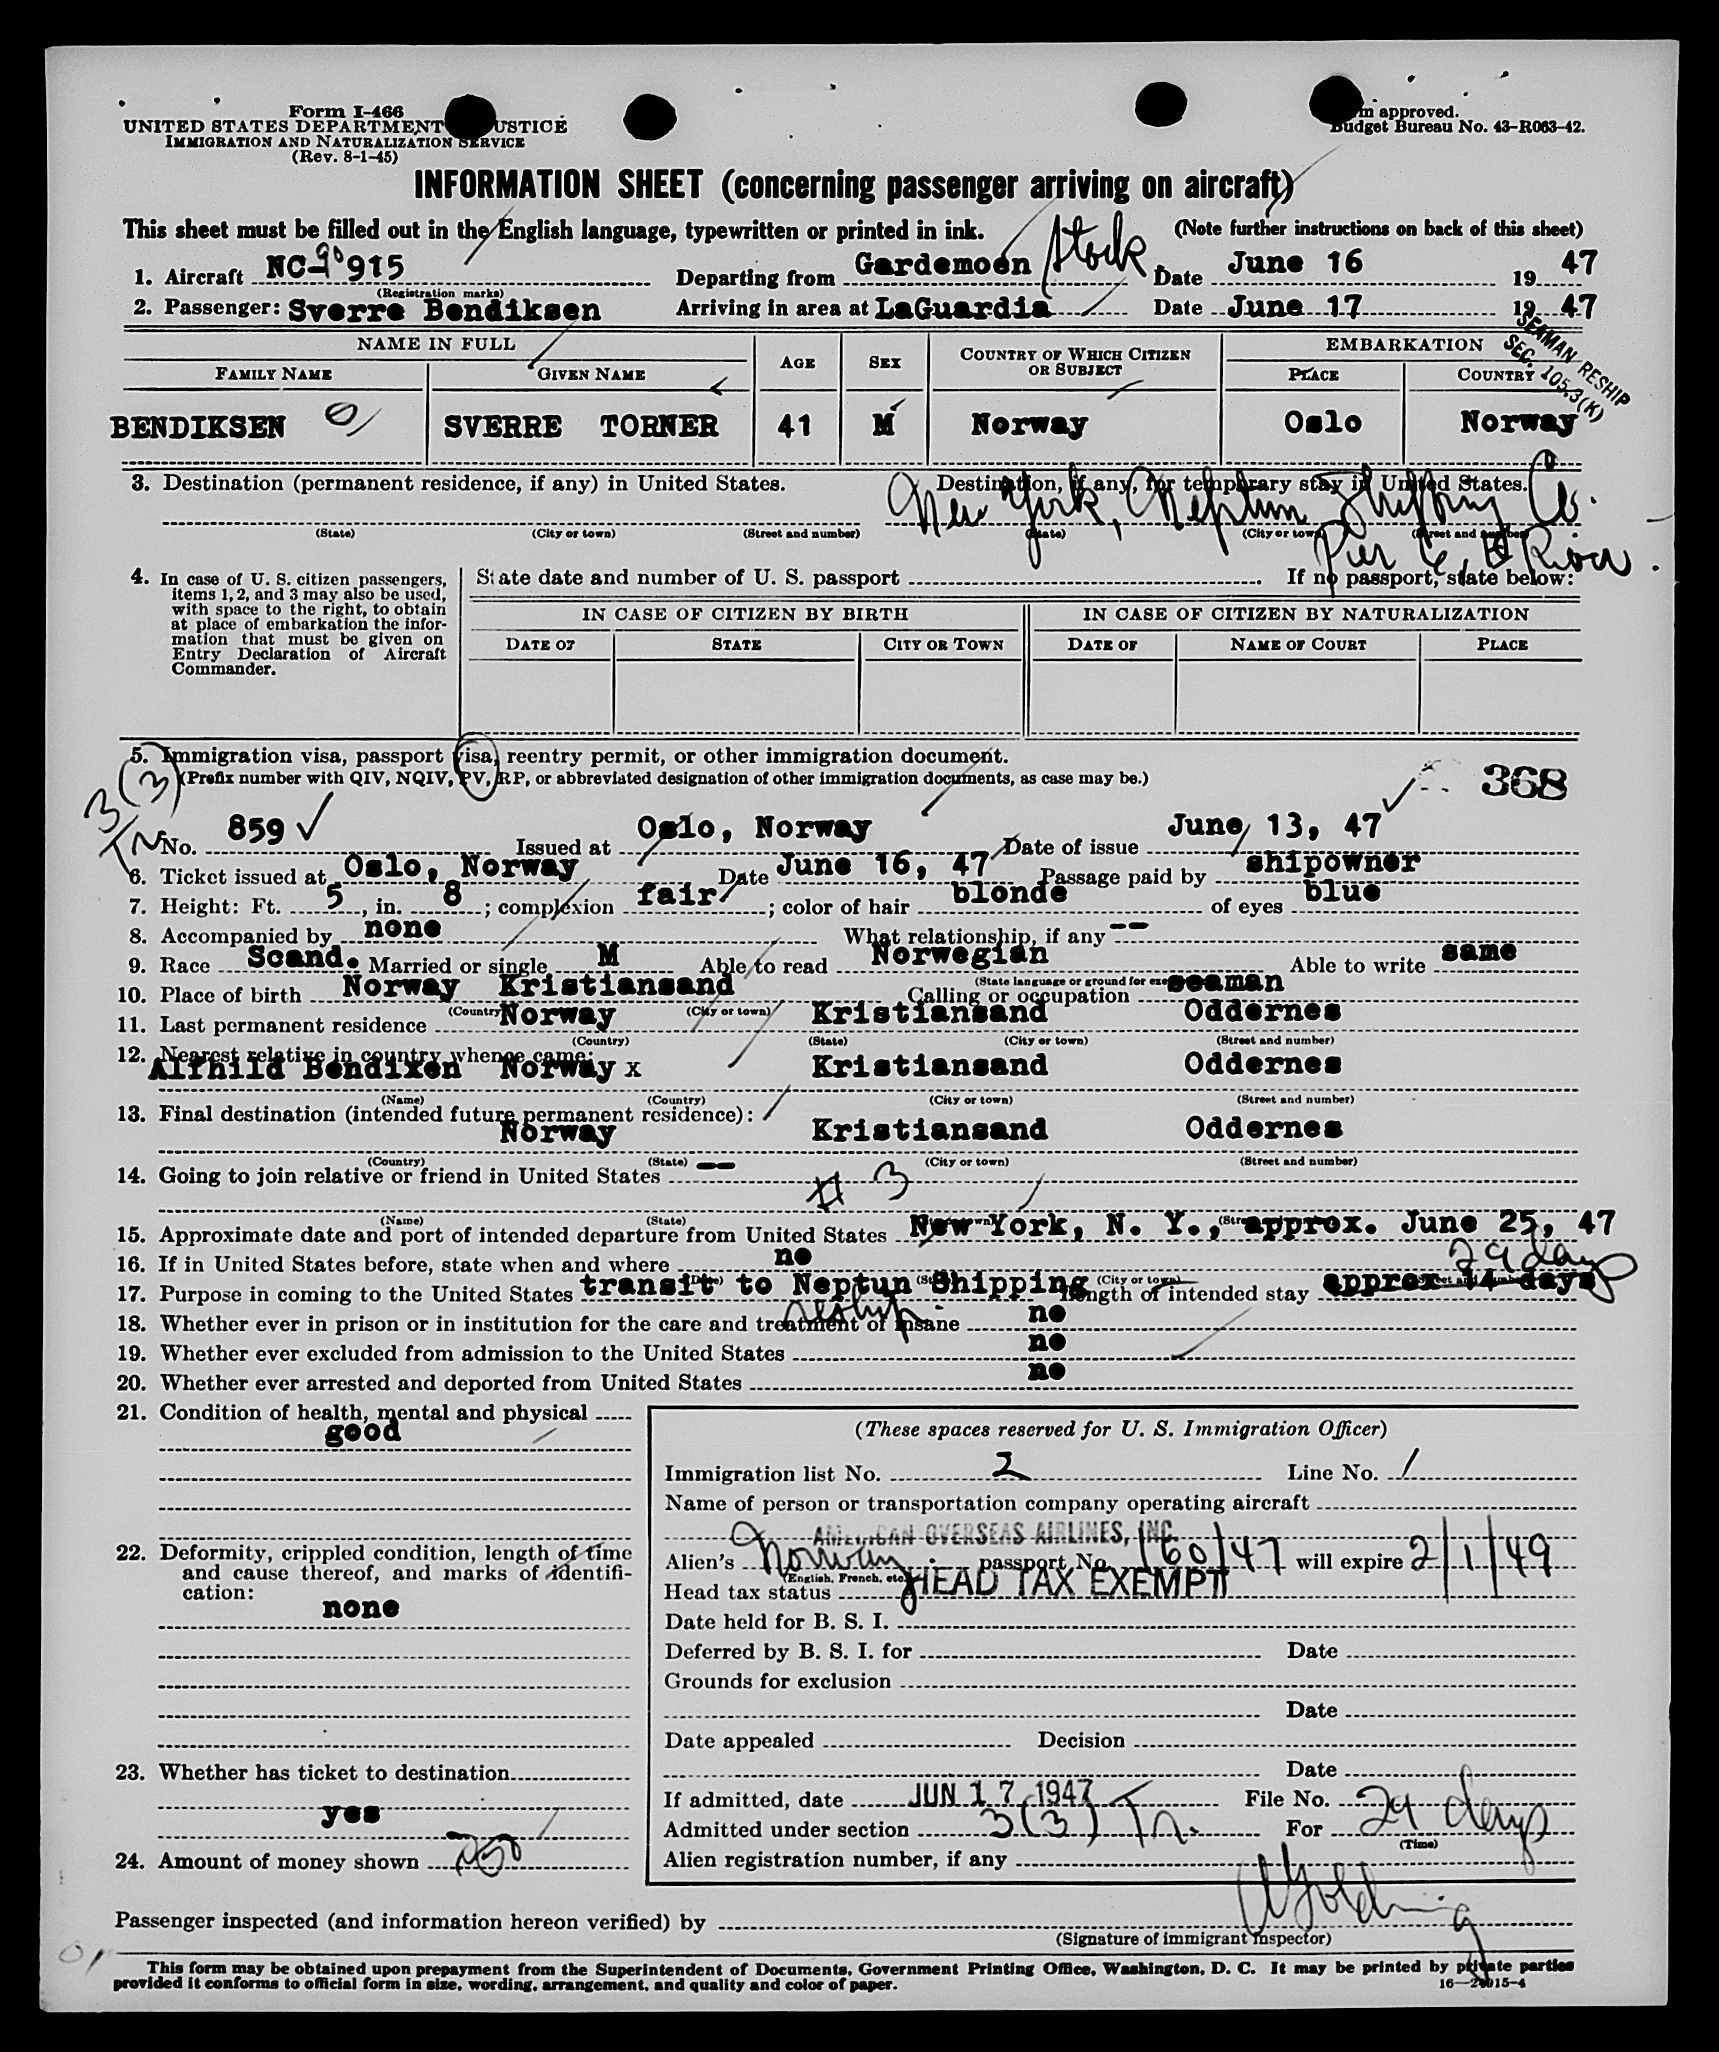 Form I-466
UNITED STATES DEPARTMENT USTICE
IMMIGRATION AND NATURALIZATION SERVICE
(Rev. 8-1-45)
m approved.
Budget Bureau No. 43-R063-42.
INFORMATION SHEET (concerning passenger arriving on aircraft)
This sheet must be filled out in the English language, typewritten or printed in ink. (Note further instructions on back of this sheet)
1. Aircraft NC-90915 Departing from Gardemoen Stock. Date June 16 1947
(Registration marks)
2. Passenger: Sverre Bendiksen Arriving in area at LaGuardia Date June 17 1947
SEAMAN RESHIP
SEC. 105.3(K)
NAME IN FULL AGE SEX COUNTRY OF WHICH CITIZEN OR SUBJECT EMBARKATION
FAMILY NAME GIVEN NAME PLACE COUNTRY
BENDIKSEN SVERRE TORNER 41 M Norway Oslo Norway
3. Destination (permanent residence, if any) in United States. Destination, if any, for temporary stay in United States.
New York, Neptun Shipping Co.
(State) (City or town) (Street and number) (State) (City or town) (Street and number)
Pier 6, E River.
4. In case of U. S. citizen passengers, items 1, 2, and 3 may also be used, with space to the right, to obtain at place of embarkation the information that must be given on Entry Declaration of Aircraft Commander.
State date and number of U. S. passport If no passport, state below:
IN CASE OF CITIZEN BY BIRTH IN CASE OF CITIZEN BY NATURALIZATION
DATE OF STATE CITY OR TOWN DATE OF NAME OF COURT PLACE
5. Immigration visa, passport visa, reentry permit, or other immigration document.
(Prefix number with QIV, NQIV, PV, RP, or abbreviated designation of other immigration documents, as case may be.) 368
3(3)
TN
No. 859 Issued at Oslo, Norway Date of issue June 13, 47
6. Ticket issued at Oslo, Norway Date June 16, 47 Passage paid by shipowner
7. Height: Ft. 5, in. 8; complexion fair; color of hair blonde of eyes blue
8. Accompanied by none What relationship, if any --
9. Race Scand. Married or single M Able to read Norwegian Able to write same
(State language or ground for exe
10. Place of birth Norway Kristiansand Calling or occupation seaman
(Country) (City or town)
11. Last permanent residence Norway Kristiansand Oddernes
(Country) (State) (City or town) (Street and number)
12. Nearest relative in country whence came:
Alfhild Bendixen Norway x Kristiansand Oddernes
(Name) (Country) (City or town) (Street and number)
13. Final destination (intended future permanent residence):
Norway Kristiansand Oddernes
(Country) (State) (City or town) (Street and number)
14. Going to join relative or friend in United States --
# 3
(Name) (State)
15. Approximate date and port of intended departure from United States New York, N. Y., approx. June 25, 47
16. If in United States before, state when and where no
29 days
17. Purpose in coming to the United States transit to Neptun Shipping Length of intended stay approx 14 days
reship.
18. Whether ever in prison or in institution for the care and treatment of insane no
19. Whether ever excluded from admission to the United States no
20. Whether ever arrested and deported from United States no
21. Condition of health, mental and physical
good
22. Deformity, crippled condition, length of time and cause thereof, and marks of identification:
none
23. Whether has ticket to destination
yes
24. Amount of money shown
(These spaces reserved for U. S. Immigration Officer)
Immigration list No. 2 Line No. 1
Name of person or transportation company operating aircraft
AMERICAN OVERSEAS AIRLINES, INC.
Alien's Norway passport No. 160/47 will expire 2/1/49
(English, French, etc.)
Head tax status HEAD TAX EXEMPT
Date held for B. S. I.
Deferred by B. S. I. for Date
Grounds for exclusion
Date
Date appealed Decision
Date
If admitted, date JUN 17 1947 File No.
Admitted under section 3(3) Tr. For 29 days
(Time)
Alien registration number, if any
Passenger inspected (and information hereon verified) by
(Signature of immigrant inspector)
This form may be obtained upon prepayment from the Superintendent of Documents, Government Printing Office, Washington, D. C. It may be printed by private parties
provided it conforms to official form in size, wording, arrangement, and quality and color of paper.